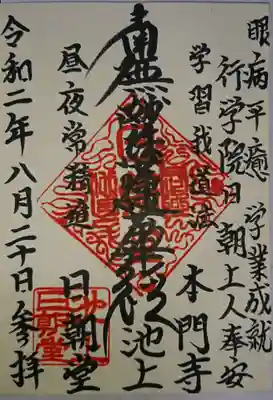 眼病平癒 学業成就
行学院日朝上人奉安
学習我道法
南無妙法蓮華経
昼夜常精進
池上
本門寺
日朝堂
令和二年八月二十日参拝